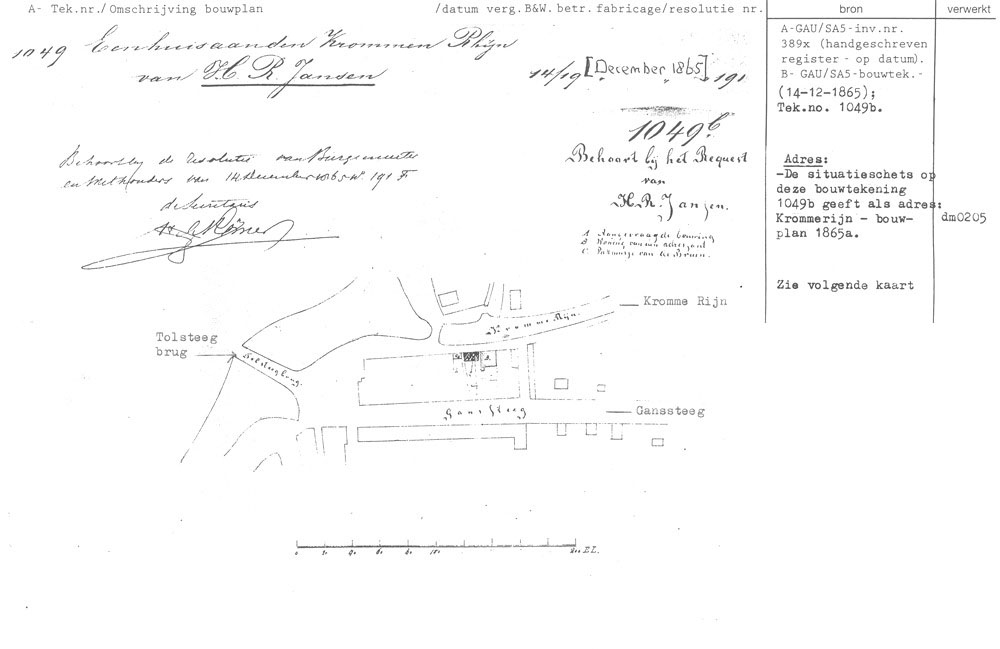 A- Tek.nr./Omschrijving bouwplan /datum verg.B&W. betr.fabricage/resolutie nr. bron verwerkt
1049 Een huis aan den Krommen Rhijn
van H. R. Jansen
14/19 [December 1865] 191
1049b
Behoort bij de resolutie van Burgemeester
en Wethouders van 14 December 1865 No 191 F
de Secretaris
Behoort bij het Request
van
H. R. Janzen.
A Aangevraagde bouwing
B Woning van
C van de
A-GAU/SA5-inv.nr.
389x (handgeschreven
register - op datum).
B- GAU/SA5-bouwtek.-
(14-12-1865);
Tek.no. 1049b.
Adres:
-De situatieschets op
deze bouwtekening
1049b geeft als adres:
Krommerijn - bouw-
plan 1865a.
dm0205
Zie volgende kaart
Kromme Rijn
Kromme Rijn.
Tolsteeg
brug
Tolsteegbrug.
Gans Steeg
Ganssteeg